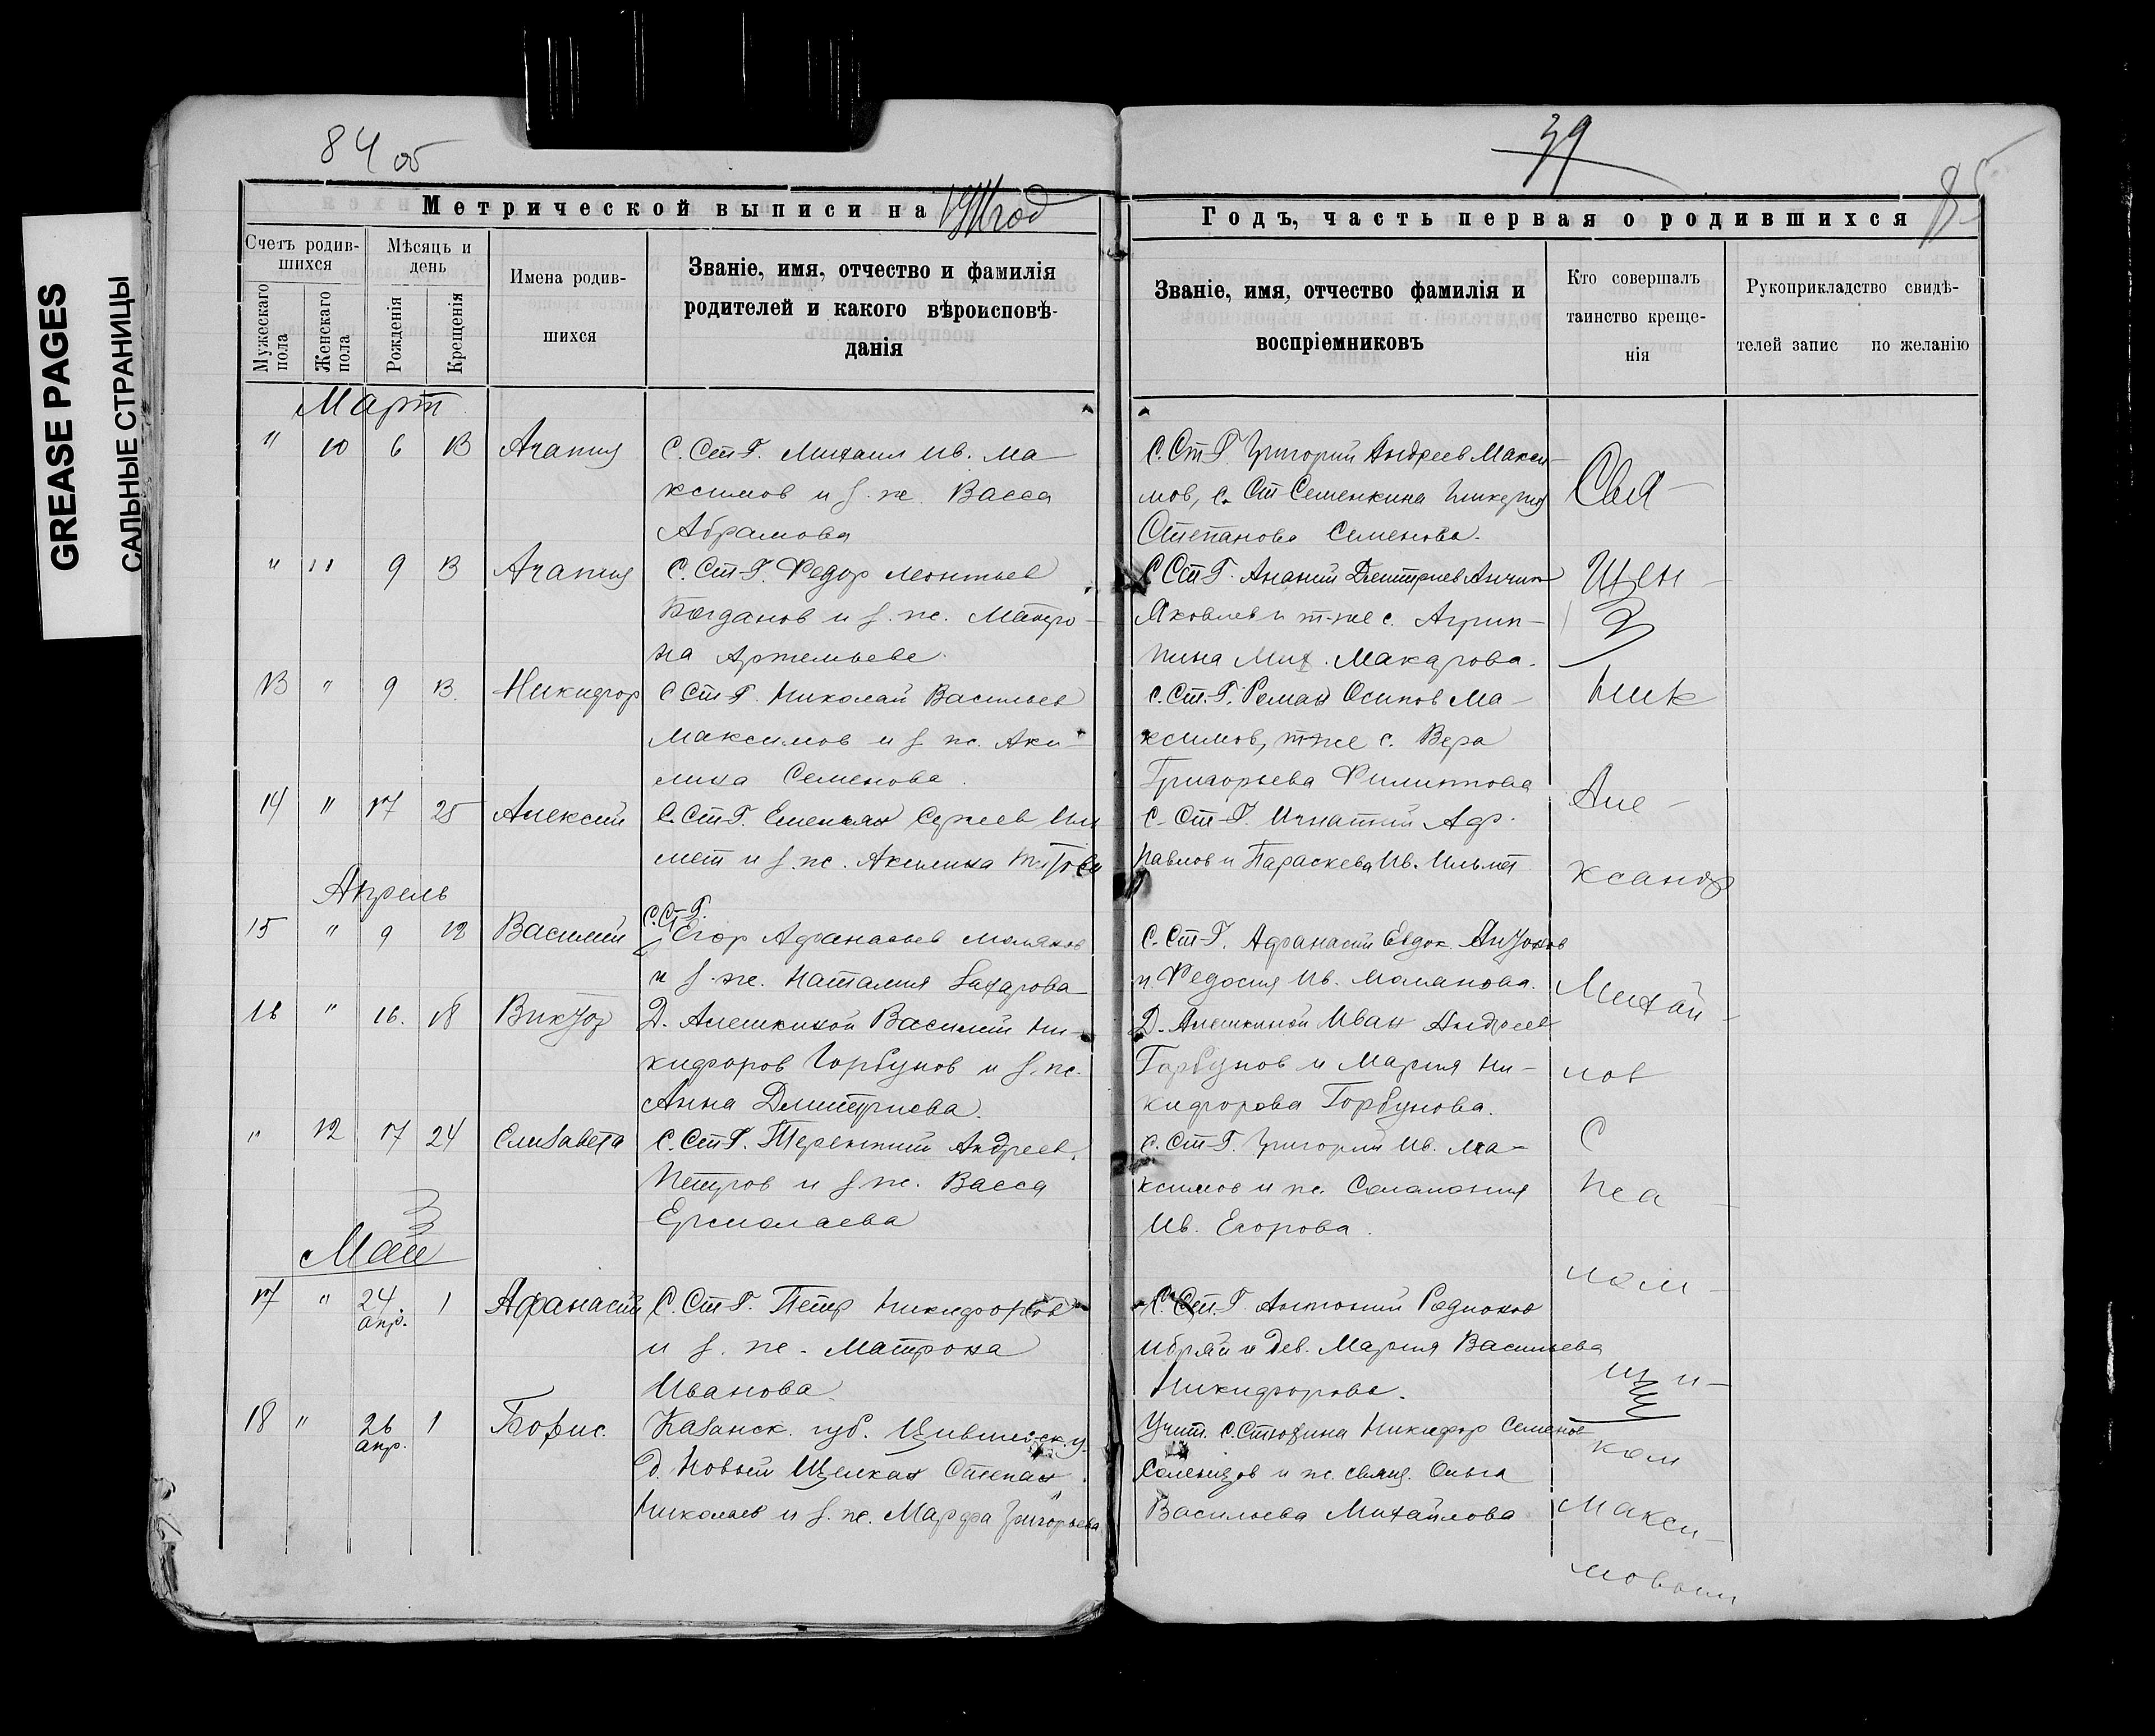 GREASE PAGES
САЛЬНЫЕ СТРАНИЦЫ
84 об
39
85
Метрической выписи на 19 год
Годъ, часть первая о родившихся
Счетъ родив-
шихся
Мѣсяць и
день
Имена родив-
шихся
Званіе, имя, отчество и фамилія
родителей и какого вѣроисповѣ-
данія
Мужескаго пола
Женскаго пола
Рожденія
Крещенія
Званіе, имя, отчество фамилія и
воспріемниковъ
Кто совершалъ
таинство креще-
нія
Рукоприкладство свидѣ-
телей запис по желанію
Март
" 10 6 13 Агапия С. Ст-Г. Михаил Ив. Ма-
ксимов и з. ж. Васса
Абрамова
С. Ст-Г. Григорий Андреев Макси-
мов, с. Ст Семенкина Гликерия
Степанова Семенова.
" 11 9 13 Агапия С. Ст-Г. Федор Леонтьев
Богданов и з. ж. Матро-
на Артемьева.
С Ст-Г. Ананий Дмитриев
Яковлев и т-же с. Агрип-
пина Мих. Макарова.
13 " 9 13. Никифор С Ст-Г. Николай Васильев
Максимов и з ж. Аки-
лина Семенова.
С. Ст.-Г. Роман Осипов Ма-
ксимов, т-же с. Вера
Григорьева Филиппова
14 " 17 25 Алексий С. Ст-Г. Емельян Сергеев Иль
мет и з. ж. Акилина Петрова
С. Ст-Г. Игнатий Аф.
Павлов и Параскева Ив. Ильмет
Апрель
15 " 9 12 Василий С. Ст-Г. Егор Афанасьев Моляков
и з. ж. Наталия Захарова
С. Ст-Г. Афанасий Евдок. Антонов
и Федосия Ив. Молякова.
16 " 16. 18 Виктор Д. Алешкиной Василий Ни-
кифоров Горбунов и з. ж.
Анна Дмитриева.
Д. Алешкиной Иван Андреев
Горбунов и Мария Ни-
кифорова Горбунова.
" 12 17 24 Елизавета С. Ст-Г. Терентий Андреев.
Петров и з ж. Васса
Ермолаева
С. Ст-Г. Григорий Ив. Ма-
ксимов и ж. Соломония
Ив. Егорова.
Май
17 " 24 апр. 1 Афанасий С. Ст-Г. Петр Никифоров
и з. ж. Матрона
Иванова
С. Ст.-Г. Антоний Родионов
и дев. Мария Васильева
Никифорова.
18 " 26 апр. 1 Борис. Казанск. губ. Цивильск. у.
д. Новый Щелкан Степан
Николаев и з. ж. Марфа Григорьева
Учит. с. Стюхина Никифор Семенов
и ж. свящ. Ольга
Васильева Михайлова
Свя-
щен-
ник
Але-
ксандр
Михай-
лов
С
пса-
лом-
щи-
ком
Макси-
мовым